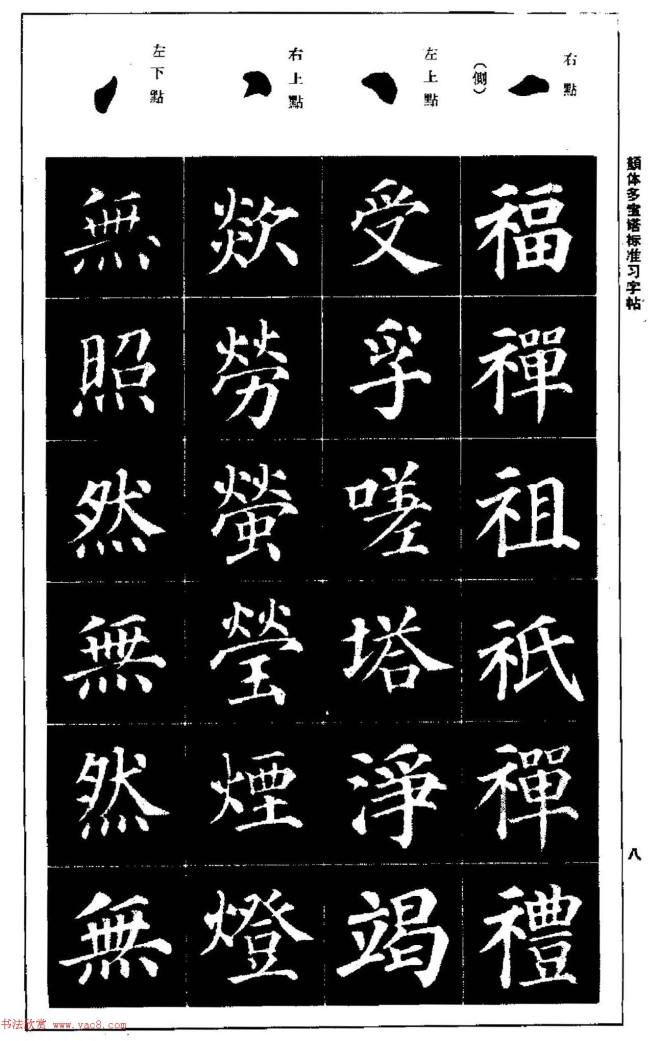 右點
（側）
左上點
右上點
左下點
福禪祖祇禪禮
受孚嗟塔淨竭
欻勞螢瑩煙燈
無照然無然無
顏体多宝塔标准习字帖
八
书法欣赏 www.yac8.com